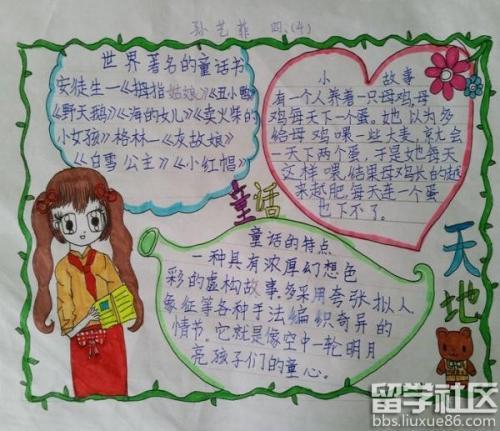 孙艺菲 四:(4)
世界著名的童话书
安徒生—《拇指姑娘》《丑小鸭》
《野天鹅》《海的女儿》《卖火柴的
小女孩》格林—《灰故娘》
《白雪公主》《小红帽》
小 故事
有一个人养着一只母鸡,母
鸡每天下一个蛋。她以为多
给母鸡喂一些大麦,就会
一天下两个蛋,于是她每天
这样喂,结果母鸡长的越
来越肥,每天连一个蛋
也下不了。
童话
天地
童话的特点
一种具有浓厚幻想色
彩的虚构故事,多采用夸张拟人
象征等各种手法编织奇异的
情节。它就是像空中一轮明月
亮孩子们的童心。
留学社区
bbs.liuxue86.com